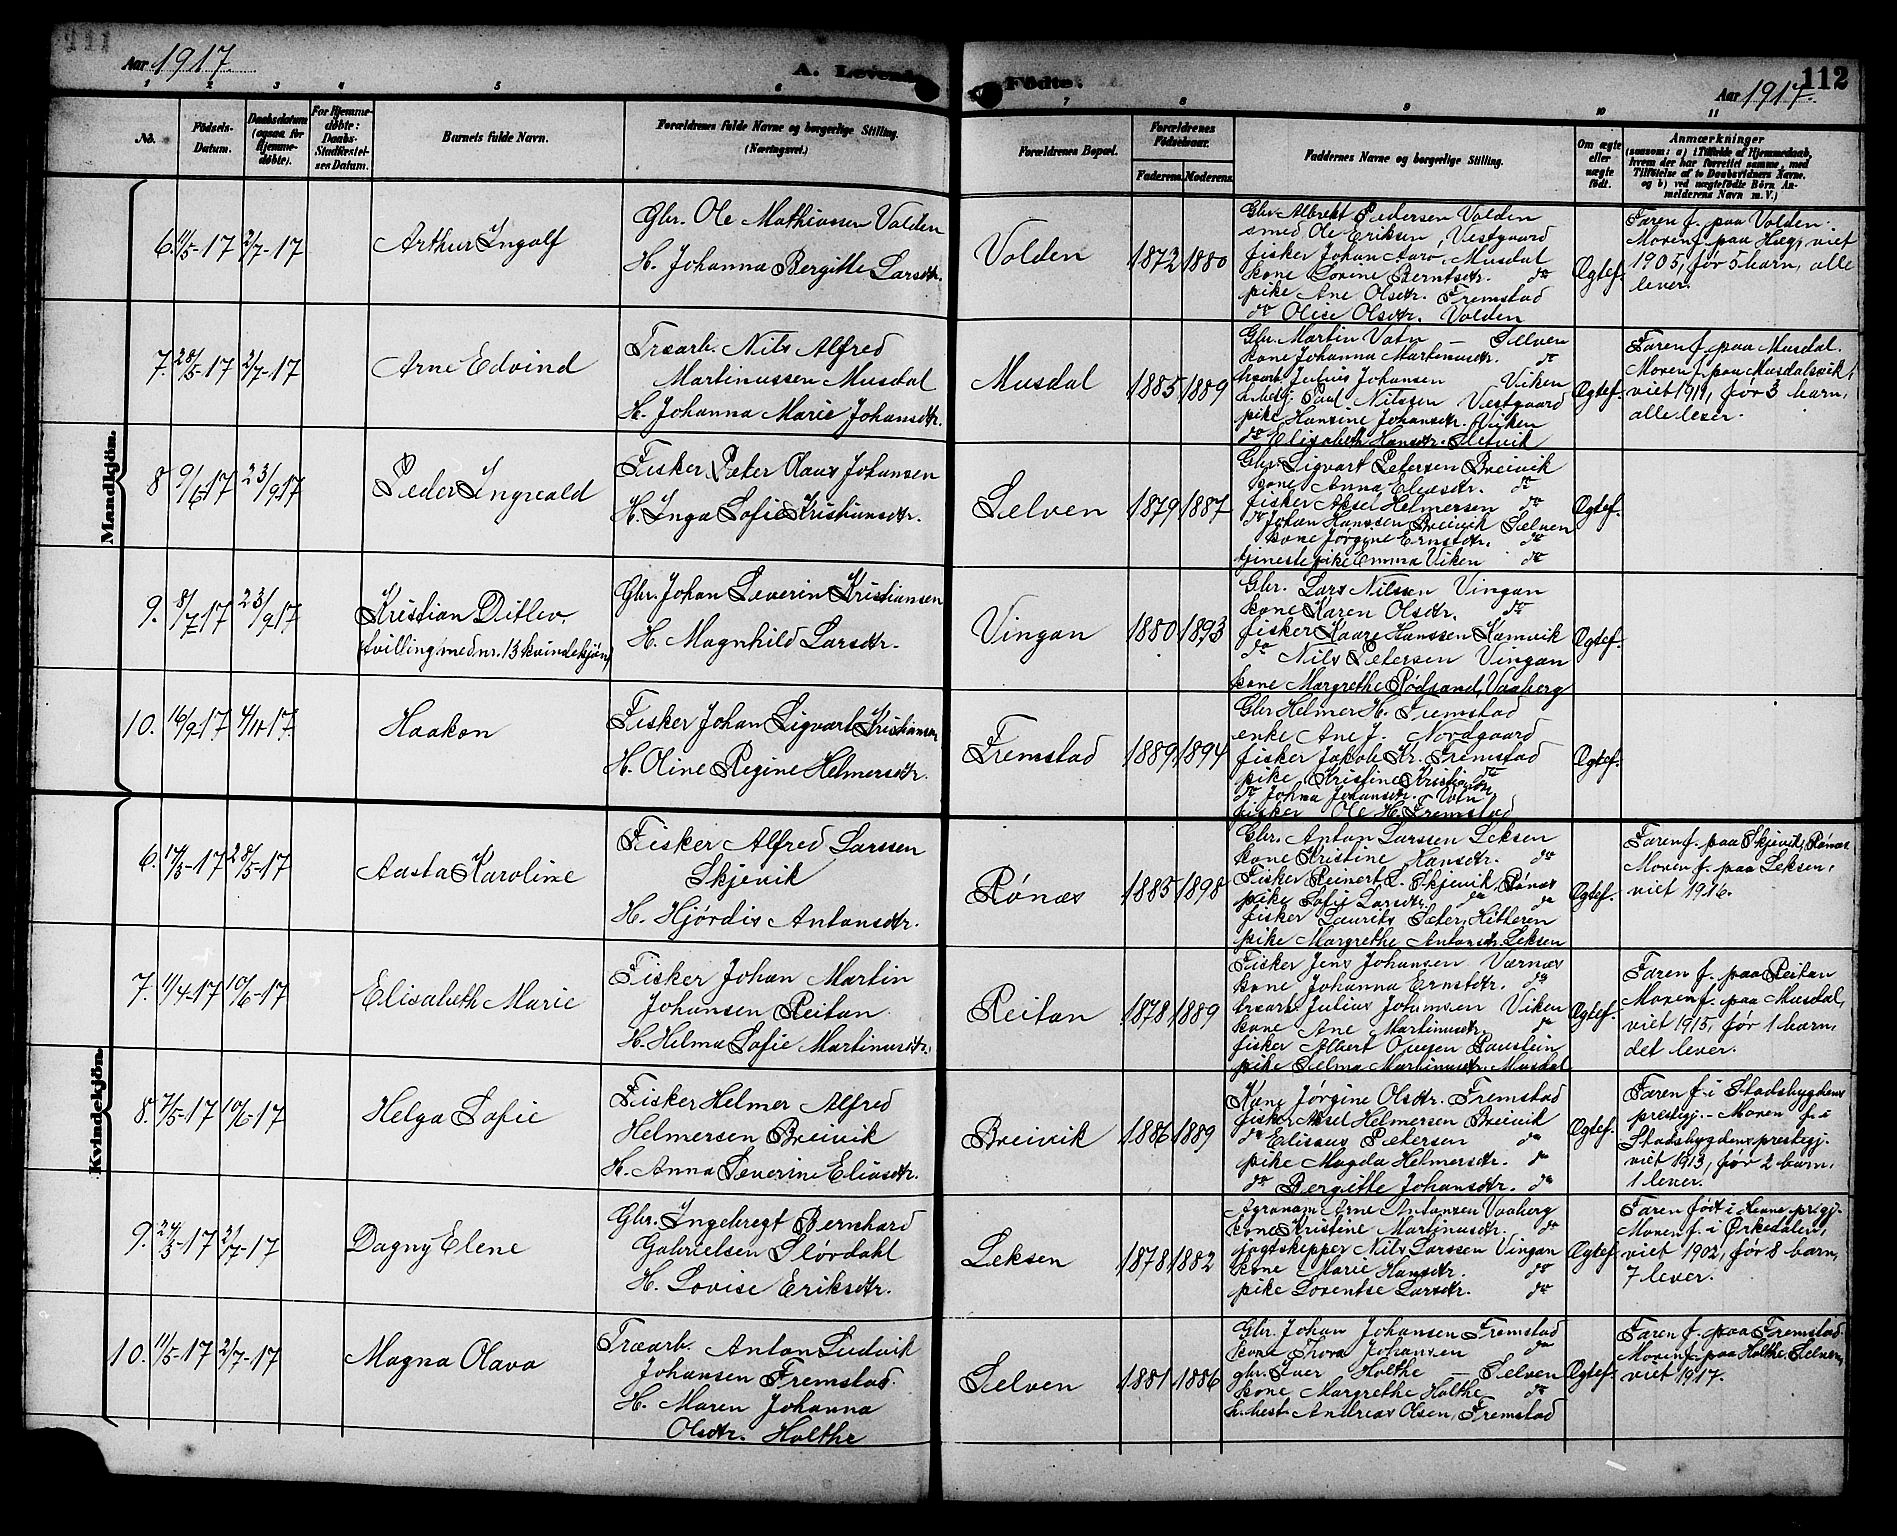 Aar 1917
A. Levende
Födte.
Aar 1917.
112
1 2 3 4 5 6 7 8 9 10 11
No.
Födsels-
Datum.
Daabsdatum
(ogsaa for
Hjemme-
døbte).
For Hjemme-
døbte:
Daabs-
Stadfæstel-
ses Datum.
Barnets fulde Navn.
Forældrenes fulde Navne og borgerlige Stilling.
(Næringsvei.)
Forældrenes Bopæl.
Forældrenes
Födselsaar.
Faderens. Moderens.
Faddernes Navne og borgerlige Stilling.
Om ægte
eller
uægte
født.
Anmærkninger
(saasom: a) i Tilfælde af Hjemmedaab,
hvem der har forrettet samme, med
Tilföielse af to Daabsvidners Navne.
og b) ved uægtefödte Börn An-
melderens Navn m. V.)
Mandkjön.
6. 11/5-17 2/7-17
Arthur Ingolf
Gbr. Ole Mathiassen Volden
H. Johanna Bergitte Larsdtr.
Volden
1872 1880
Gbr. Albrekt Pedersen Volden
smed Ole Eriksen, Vestgaard
fisker Johan Aaro, Musdal
kone Lovine Berntsdtr. do
pike Ane Olsdtr. Fremstad
do Olise Olsdtr. Volden
Ægtef.
Faren f. paa Volden.
Moren f. paa Haug, viet
1905, før 5 barn, alle
lever.
7. 28/5-17 2/7-17
Arne Edvind
Træarb. Nils Alfred
Martinussen Musdal
H. Johanna Marie Johansdtr.
Musdal
1885 1889
Gbr. Martin Vatn – Selven
kone Johanna Martinusdtr. do
Julius Johansen Viken
Paul Nilssen Vestgaard
pike Hansine Johansdtr. Viken
do Elisabeth Hansdtr. Sletvik
Ægtef.
Faren f. paa Musdal.
Moren f. paa Musdalsvik,
viet 1911, før 3 barn,
alle lever.
8 9/6-17 23/9-17
Peder Ingvald
Fisker Peter Olaus Johansen
H. Inga Sofie Kristiansdtr.
Selven
1879 1887
Gbr. Sigvart Petersen Breivik
kone Anna Eliasdtr. do
fisker Aksel Helmersen do
do Johan Hanssen Breivik Selven
kone Jørgine Ernstdtr. do
tjenestepike Emma Viken do
Ægtef.
9. 8/7-17 23/9-17
Kristian Ditlev.
(tvilling med nr. 13 kvindekjøn)
Gbr. Johan Severin Kristiansen
H. Magnhild Larsdtr.
Vingan
1880 1893
Gbr. Lars Nilssen Vingan
kone Karen Olsdtr. do
fisker Kaare Hanssen Kamvik
do Nils Petersen Vingan
kone Margrethe Rødsand, Vaaberg
Ægtef.
10. 16/9-17 4/11-17
Haakon
Fisker Johan Sigvart Kristiansen
H. Oline Regine Helmersdtr.
Fremstad
1889. 1894
Gbr Helmer H. Fremstad
enke Ane J. Nordgaard
fisker Jakob Kr. Fremstad
pike Kristine Kristiansdtr. do
do Johna Johansdtr. Vatn
fisker Ole H. Fremstad
Ægtef.
Kvindekjön.
6. 17/3-17 28/5-17
Aasta Karoline
Fisker Alfred Larssen
Skjevik
H. Hjørdis Antonsdtr.
Rönæs
1885 1898
Gbr. Anton Larssen Leksen
kone Kristine Hansdtr. do
Fisker Reinert L. Skjevik, Rönæs
pike Sofie Larsdtr. do do
fisker Laurits Sæter, Hitteren
pike Margrethe Antonsdtr. Leksen
Ægtef.
Faren f. paa Skjevik, Rønæs
Moren f. paa Leksen,
viet 1916.
7. 11/4-17 10/6-17
Elisabeth Marie
Fisker Johan Martin
Johansen Reitan
H. Helma Sofie Martinusdtr.
Reitan
1878 1889
Fisker Jens Johansen Værnæs
kone Johanna Ernstdtr. do
Julius Johansen Viken
kone Ane Martinusdtr. do
fisker Albert Paustein
pike Selma Martinusdtr. Musdal
Ægtef.
Faren f. paa Reitan
Moren f. paa Musdal,
viet 1915, før 1 barn,
det lever.
8. 7/5-17 10/6-17
Helga Sofie
Fisker Helmer Alfred
Helmersen Breivik
H. Anna Severine Eliasdtr.
Breivik
1886 1889
Kone Jørgine Olsdtr. Fremstad
fisker Aksel Helmersen Breivik
do Elisæus Petersen do
pike Magda Helmersdtr. do
do Bergitte Johansdtr. do
Ægtef.
Faren f. i Stadsbygdens
prestegj. – Moren f. i
Stadsbygdens prestegj.
viet 1913, før 2 barn,
1 lever.
9. 24/3-17 2/7-17
Dagny Elene
Gbr. Ingebregt Bernhard
Gabrielsen Slørdahl
H. Lovise Eriksdtr.
Leksen
1878 1882
Agronom Arne Antonsen Vaaberg
kone Kristine Martinusdtr. do
jagtskipper Nils Larssen Vingan
kone Marie Hansdtr. do
pike Lorentse Larsdtr. do
Ægtef.
Faren født i Hevne prgj.
Moren f. i Ørkedalen,
viet 1902, før 8 barn,
7 lever.
10. 11/5-17 2/7-17
Magna Olava
Træarb. Anton Ludvik
Johansen Fremstad.
H. Maren Johanna
Olsdtr. Holthe
Selven
1881 1886
Gbr. Johan Johansen Fremstad
kone Thora Johansen do
gbr. Iver Holthe – Selven
kone Margrethe Holthe do
Andreas Olsen, Fremstad
Ægtef.
Faren f. paa Fremstad.
Moren f. paa Holthe, Selven,
viet 1917.